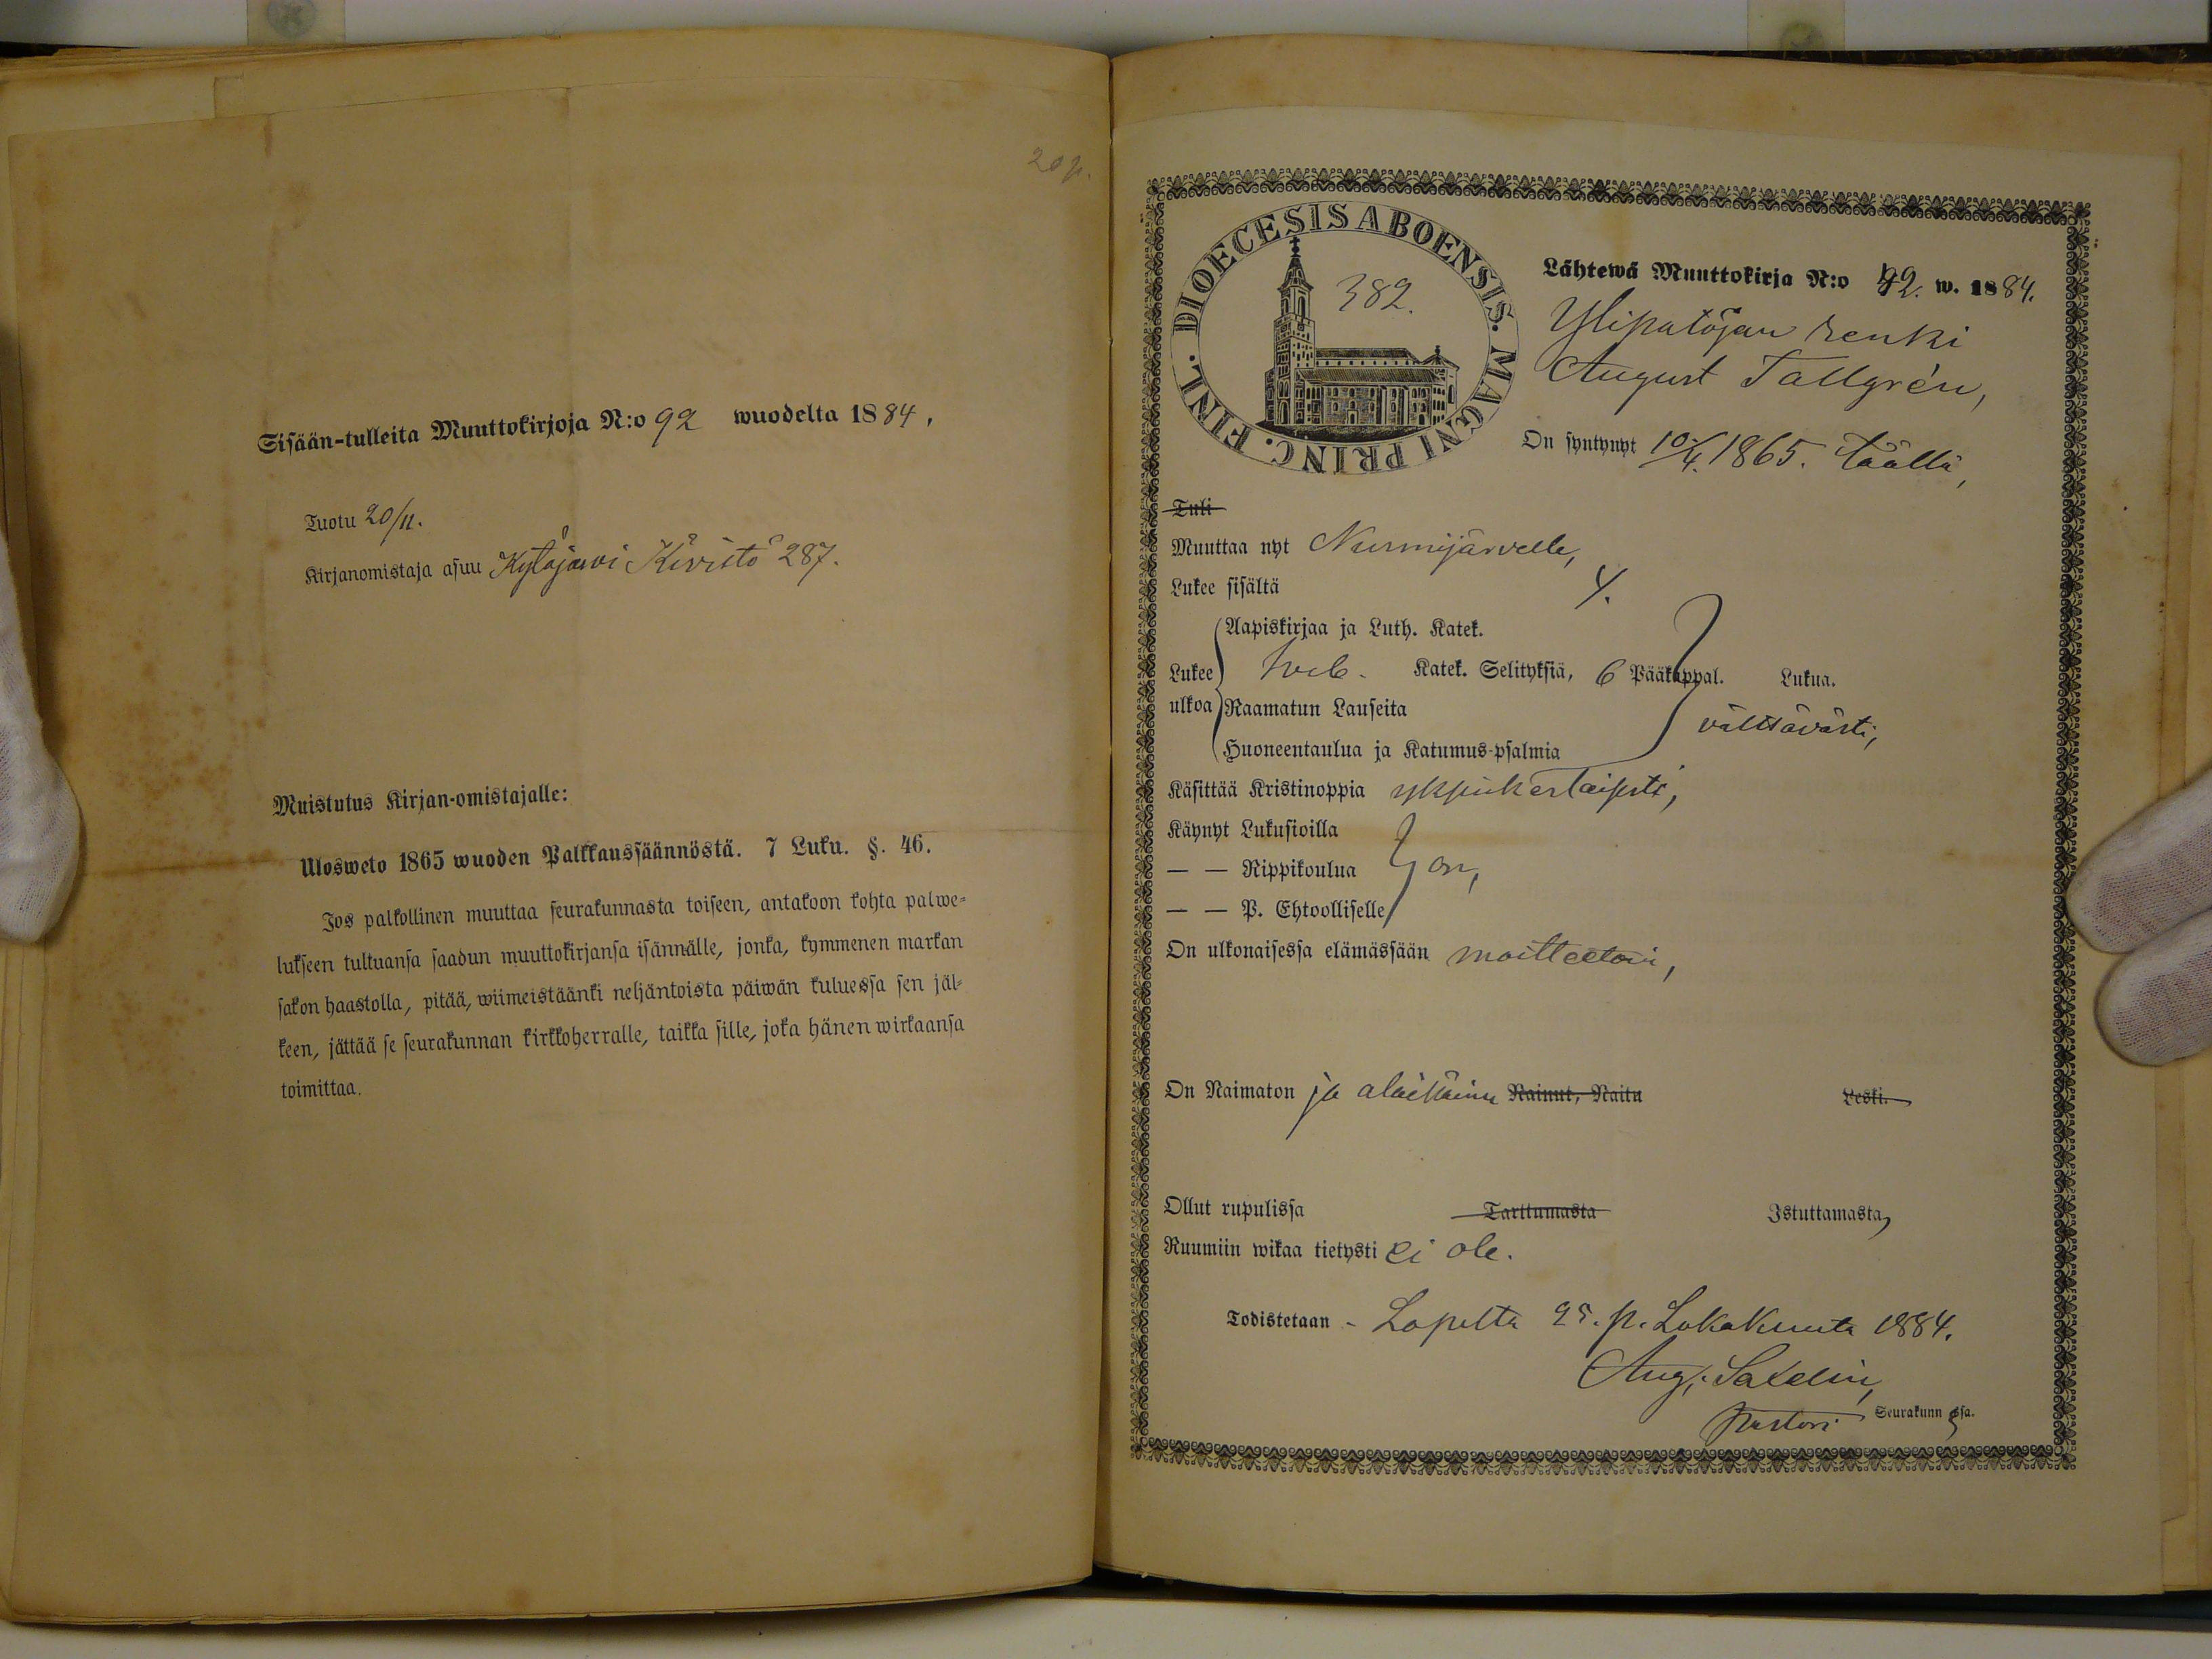 20 p.
Sisään-tulleita Muuttokirjoja N:o 92 wuodelta 1884.
Tuotu 20/11.
Kirjanomistaja asuu Kytäjärvi Kivistö 287.
Muistutus Kirjan-omistajalle:
Ulosweto 1865 wuoden Palkkaussäännöstä. 7 Luku. §. 46.
Jos palkollinen muuttaa seurakunnasta toiseen, antakoon kohta palwe-
lukseen tultuansa saadun muuttokirjansa isännälle, jonka, kymmenen markan
sakon haastolla, pitää, wiimeistäänki neljäntoista päiwän kuluessa sen jäl-
keen, jättää se seurakunnan kirkkoherralle, taikka sille, joka hänen wirkaansa
toimittaa.
DIOECESIS ABOENSIS. MAGNI PRINC. FINL.
382.
Lähtewä Muuttokirja N:o 92. w. 1884.
renki
August Tallgrén,
On syntynyt 10/4. 1865. täällä,
Tuli
Muuttaa nyt Nurmijärvelle,
Lukee sisältä Y.
Aapiskirjaa ja Luth. Katek.
Lukee Katek. Selityksiä, 6 Pääkappal. Lukua.
ulkoa Raamatun Lauseita välttävästi,
Huoneentaulua ja Katumus-psalmia
Käsittää Kristinoppia yksinkertaisesti,
Käynyt Lukusioilla
— — Rippikoulua on,
— — P. Ehtoolliselle
On ulkonaisessa elämässään moitteetoin,
On Naimaton ja alaikäinen Nainut, Naitu Leski.
Ollut rupulissa Tarttumasta Istuttamasta,
Ruumiin wikaa tietysti ei ole.
Todistetaan - Lopelta 25. p. Lokakuuta 1884.
Aug. Salelin,
Pastori Seurakunn ssa.